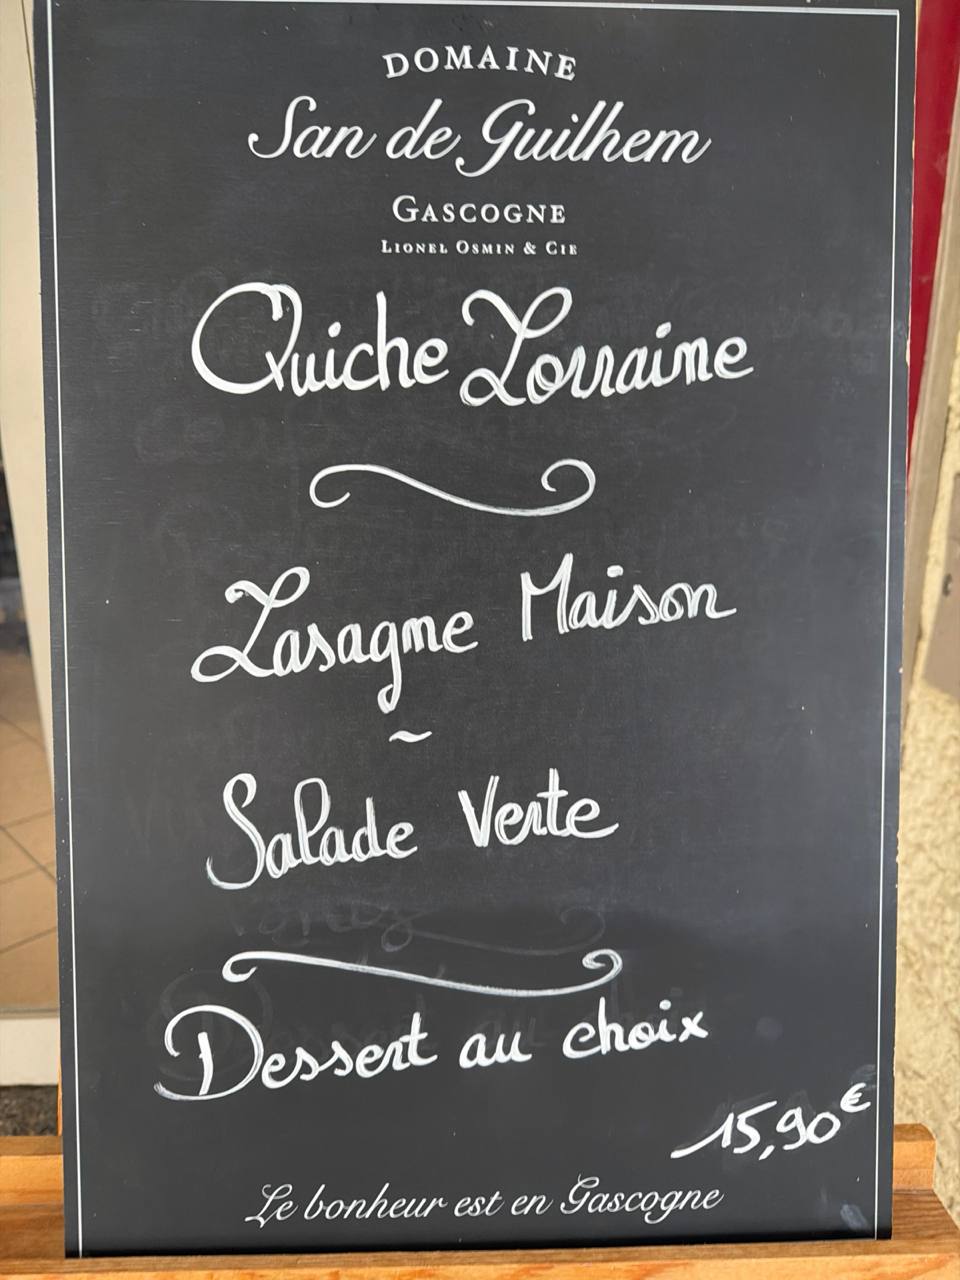 DOMAINE
San de Guilhem
GASCOGNE
LIONEL OSMIN & CIE
Quiche Lorraine
Lasagne Maison
~
Salade Verte
Dessert au choix
15,90€
Le bonheur est en Gascogne